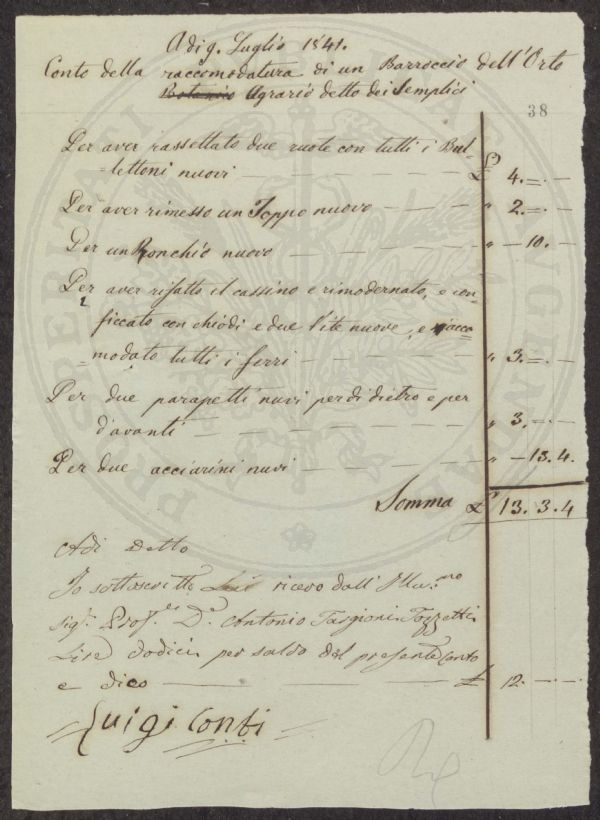 Adi 9. Luglio 1841.
Conto della raccomodatura di un Barroccio dell'Orto
Botanico Agrario detto dei Semplici
38
Per aver rassettato due ruote con tutti i Bul=
=lettoni nuovi — — — — £ 4. =. —
Per aver rimesso un Toppo nuovo — — — " 2. =. —
Per un Ronchio nuovo — — — — " — 10. —
Per aver rifatto il cassino e rimodernato, e con=
ficcato con chiodi e due Vite nuove, e riacco=
=modato tutti i ferri — — — — " 3. =. —
Per due parapetti nuvi per di dietro e per
d'avanti — — — — " 3. —. —
Per due acciarini nuvi — — — — " — 13. 4.
Somma £ 13. 3. 4
Adi Detto
Io sottoscritto ricevo dall' Illu.mo
Sig.r Prof.re D.re Antonio Targioni Tozzetti
Lire dodici per saldo del presente Conto
e dico — — £ 12. —. —
Luigi Conti
PROSPERITATI PUBLICAE AUGENDAE